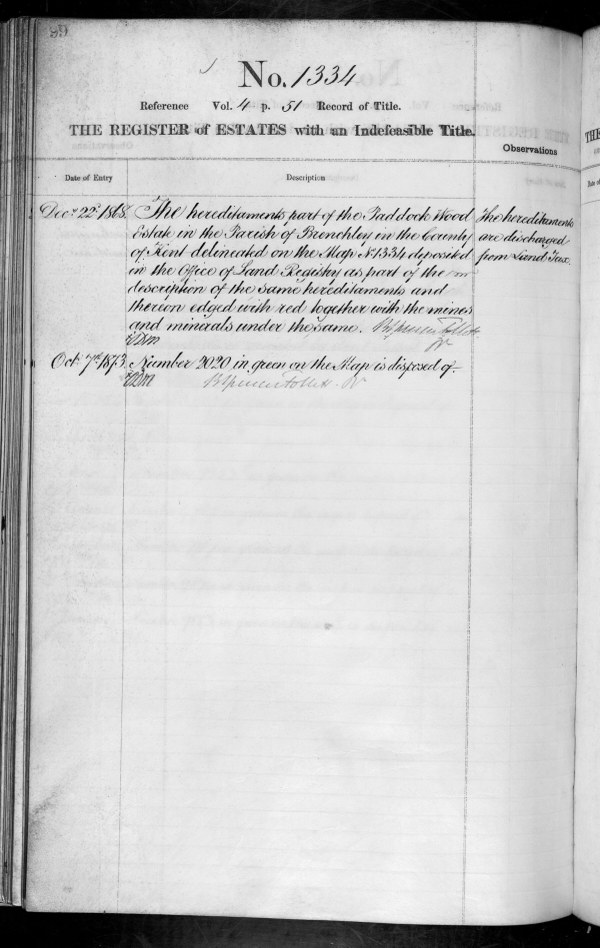 No. 1334
Reference Vol. 4 p. 51 Record of Title.
THE REGISTER of ESTATES with an Indefeasible Title.
Observations
Date of Entry
Description
Decr 22d 1868. The hereditaments part of the Paddock Wood
Estate in the Parish of Brenchley in the County
of Kent delineated on the Map No 1334 deposited
in the Office of Land Registry as part of the
description of the same hereditaments and
thereon edged with red together with the mines
and minerals under the same.
The hereditaments
are discharged
from Land Tax.
Oct. 7th 1873. Number 2020 in green on the Map is disposed of.
THE
Date of